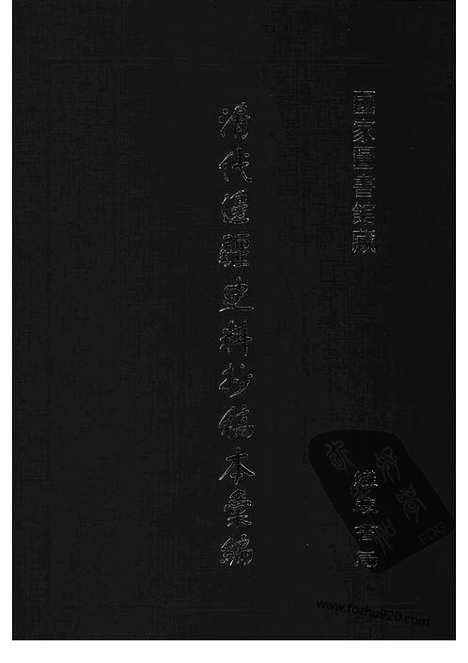 國家圖書館藏
清代邊疆史料抄稿本彙編
線裝書局
www.fozhu920.com